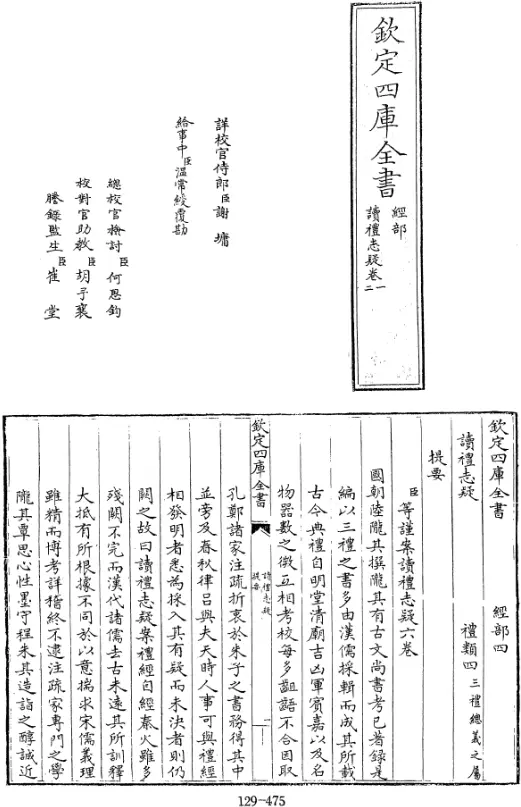 欽定四庫全書
經部
讀禮志疑卷一二
詳校官侍郎臣謝墉
給事中臣温常綬覆勘
總校官檢討臣何思鈞
校對官助教臣胡子襄
謄錄監生臣崔堂
欽定四庫全書 經部四
讀禮志疑 禮類四 三禮總義之屬
提要
臣等謹案讀禮志疑六卷
國朝陸隴其撰隴其有古文尚書考已著錄是
編以三禮之書多由漢儒採輯而成其所載
古今典禮自明堂清廟吉凶軍賓嘉以及名
物器數之微互相考校每多齟語不合因取
欽定四庫全書
讀禮志疑
提要
一
孔鄭諸家注疏折衷於朱子之書務得其中
並旁及春秋律吕與夫天時人事可與禮經
相發明者悉為採入其有疑而未決者則仍
闕之故曰讀禮志疑案禮經自經秦火雖多
殘闕不完而漢代諸儒去古未逺其所訓釋
大抵有所根據不同於以意揣求宋儒義理
雖精而博考詳稽終不逮注疏家專門之學
隴其覃思心性墨守程朱其造詣之醇誠近
129-475